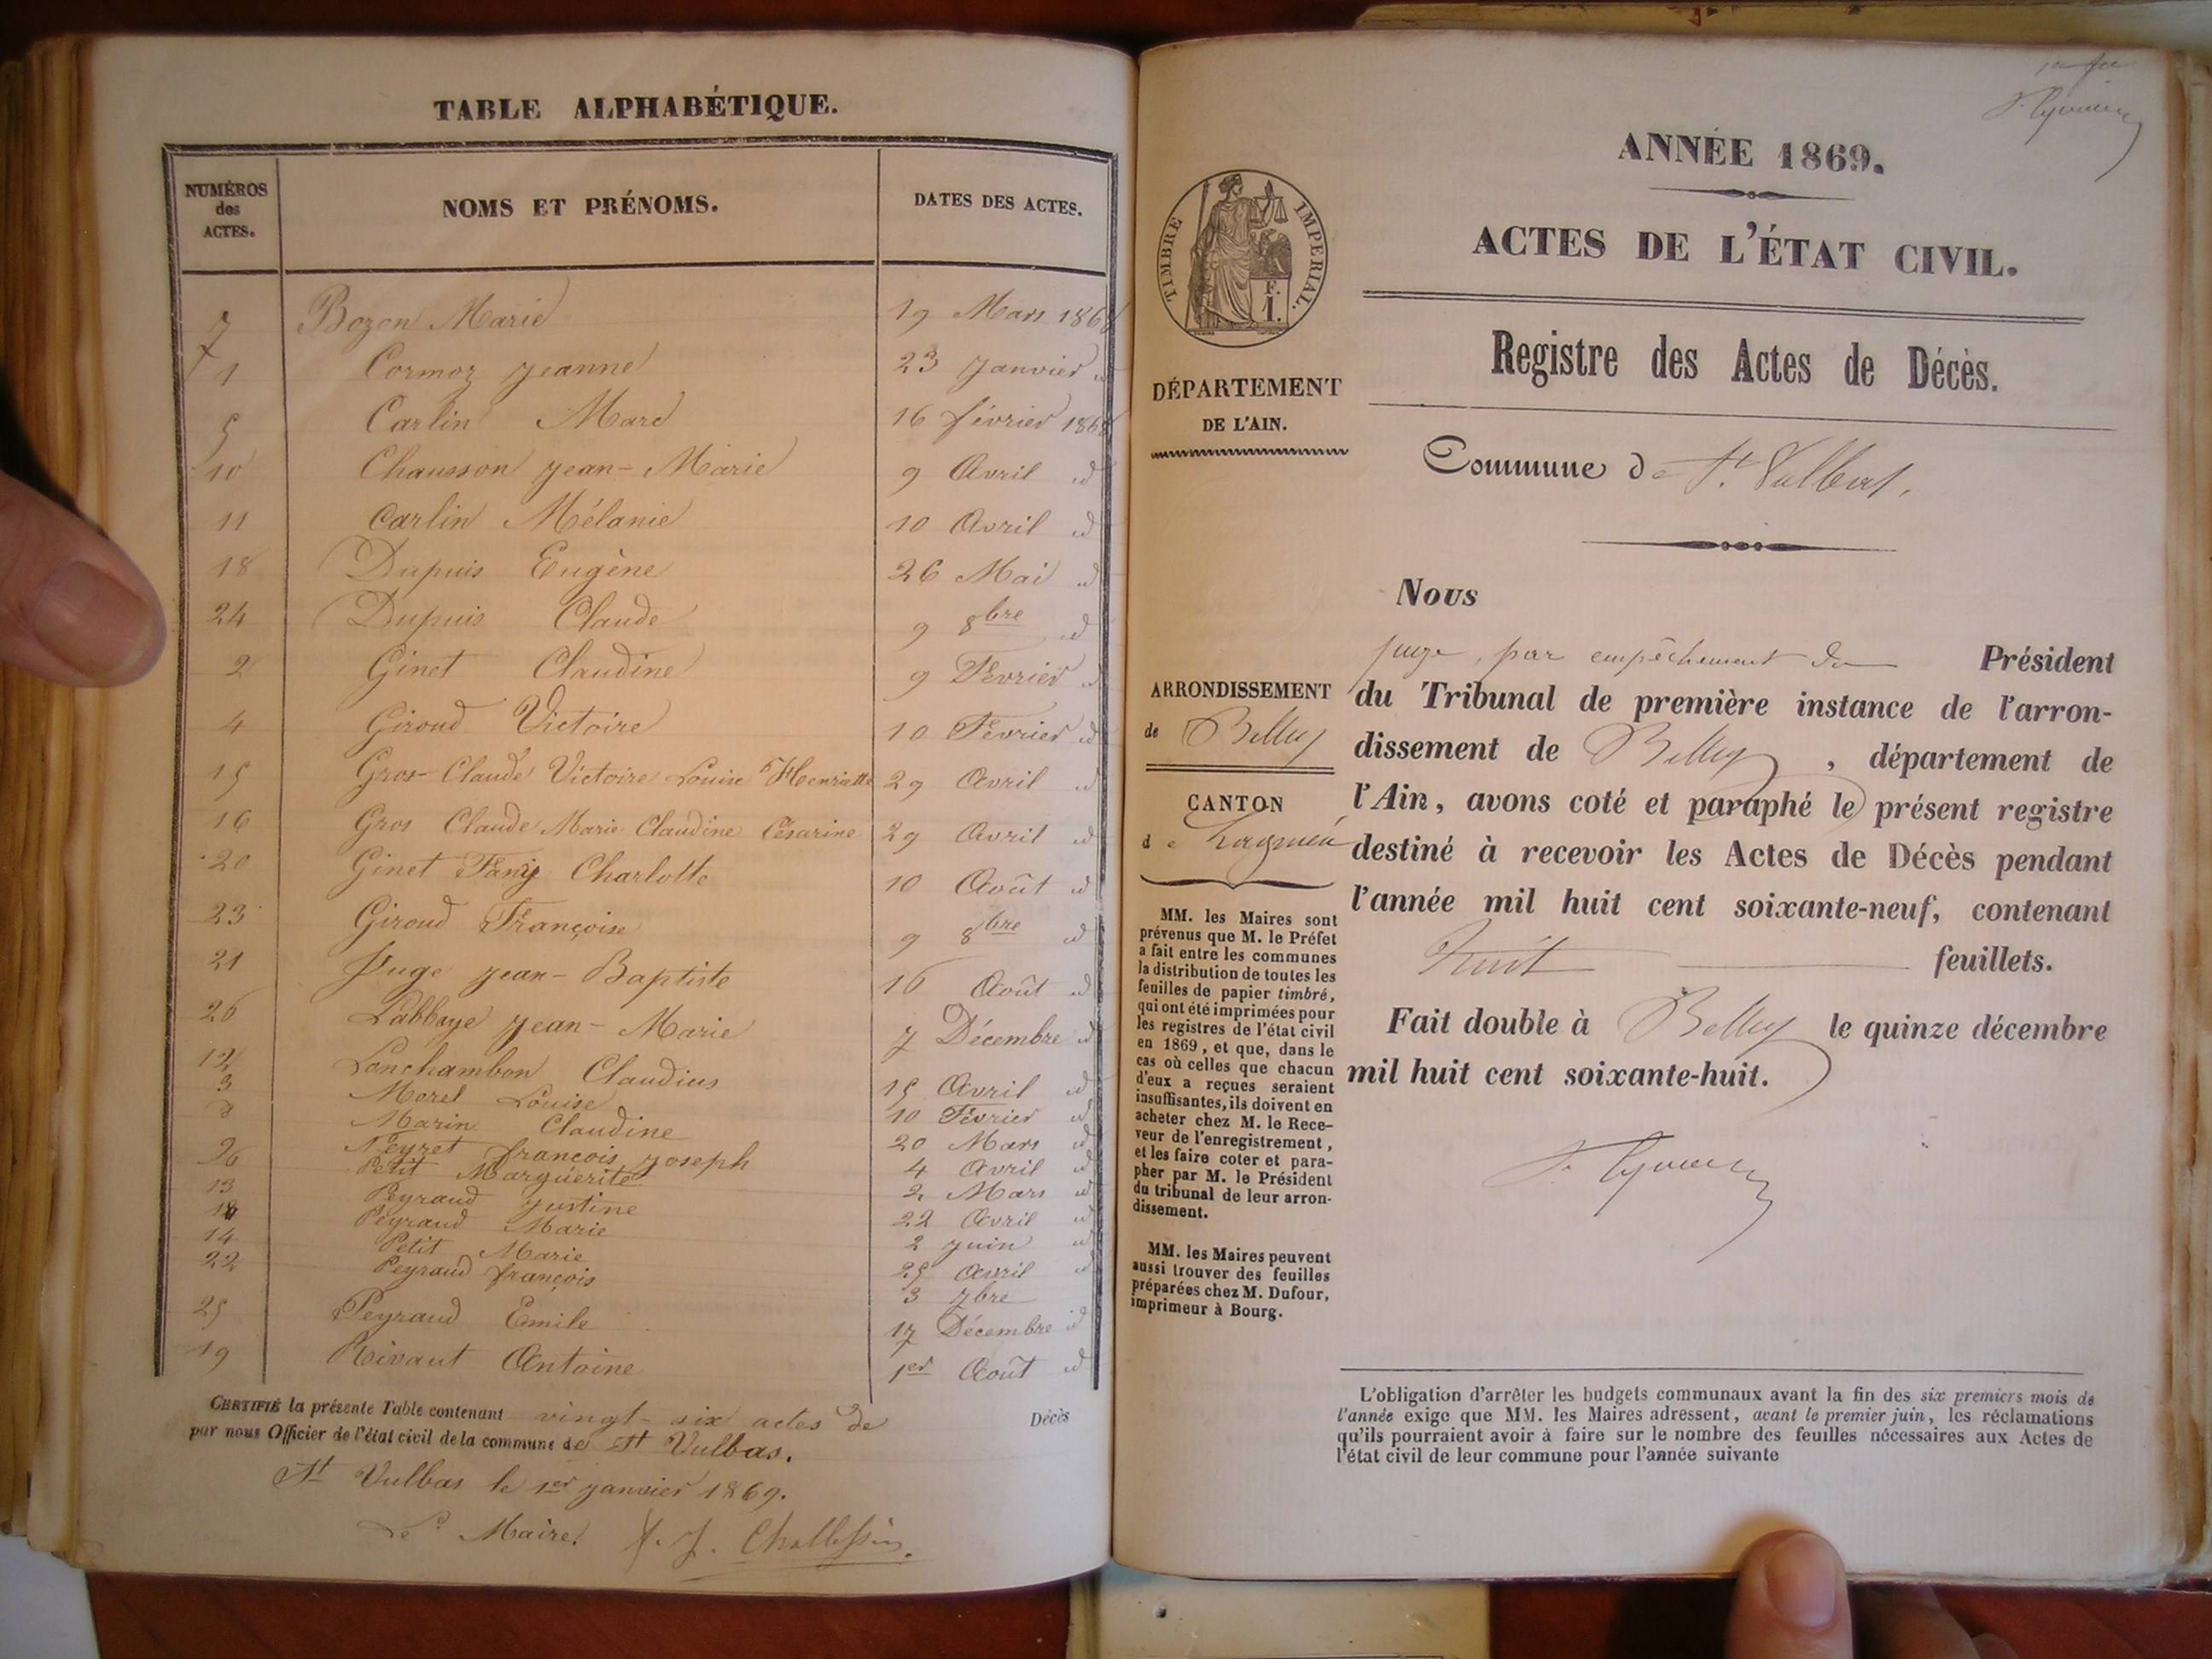 TABLE ALPHABÉTIQUE.
NUMÉROS des ACTES.
NOMS ET PRÉNOMS.
DATES DES ACTES.
7 Bozon Marie 19 Mars 1868
1 Cormoz Jeanne 23 Janvier id
5 Carlin Marc 16 février 1868
10 Chausson Jean-Marie 9 Avril id
11 Carlin Mélanie 10 Avril id
18 Dupuis Eugène 26 Mai id
24 Dupuis Claude 9 8bre id
2 Ginet Claudine 9 Février id
4 Giroud Victoire 10 Février id
15 Gros-Claude Victoire Louise Henriette 29 Avril id
16 Gros Claude Marie Claudine Césarine 29 Avril id
20 Ginet Fany Charlotte 10 Août id
23 Giroud Françoise 9 8bre id
21 Juge Jean-Baptiste 16 Août id
26 Labbaye Jean-Marie 7 Décembre id
12 Lonchambon Claudius 15 Avril id
3 Morel Louise 10 Février id
8 Marin Claudine 20 Mars id
Neyret françois Joseph 4 Avril id
Petit Marguérite 2 Mars id
13 Peyraud Justine 22 Avril id
Peyraud Marie 2 Juin id
14 Petit Marie 25 Avril id
22 Peyraud françois 3 7bre
25 Peyraud Emile 17 Décembre id
19 Rivaut Antoine 1er Août id
CERTIFIÉ la présente Table contenant vingt-six actes de Décès
par nous Officier de l'état civil de la commune de St Vulbas.
St Vulbas le 1er janvier 1869.
Le Maire,
ANNÉE 1869.
ACTES DE L'ÉTAT CIVIL.
Registre des Actes de Décès.
TIMBRE IMPERIAL.
F.
1.
DÉPARTEMENT
DE L'AIN.
Commune de St. Vulbas.
ARRONDISSEMENT
de Belley
CANTON
de Lagnieu
MM. les Maires sont
prévenus que M. le Préfet
a fait entre les communes
la distribution de toutes les
feuilles de papier timbré,
qui ont été imprimées pour
les registres de l'état civil
en 1869, et que, dans le
cas où celles que chacun
d'eux a reçues seraient
insuffisantes, ils doivent en
acheter chez M. le Rece-
veur de l'enregistrement,
et les faire coter et para-
pher par M. le Président
du tribunal de leur arron-
dissement.
MM. les Maires peuvent
aussi trouver des feuilles
préparées chez M. Dufour,
imprimeur à Bourg.
Nous
juge, par empêchement du Président
du Tribunal de première instance de l'arron-
dissement de Belley, département de
l'Ain, avons coté et paraphé le présent registre
destiné à recevoir les Actes de Décès pendant
l'année mil huit cent soixante-neuf, contenant
huit feuillets.
Fait double à Belley le quinze décembre
mil huit cent soixante-huit.
L'obligation d'arrêter les budgets communaux avant la fin des six premiers mois de
l'année exige que MM. les Maires adressent, avant le premier juin, les réclamations
qu'ils pourraient avoir à faire sur le nombre des feuilles nécessaires aux Actes de
l'état civil de leur commune pour l'année suivante